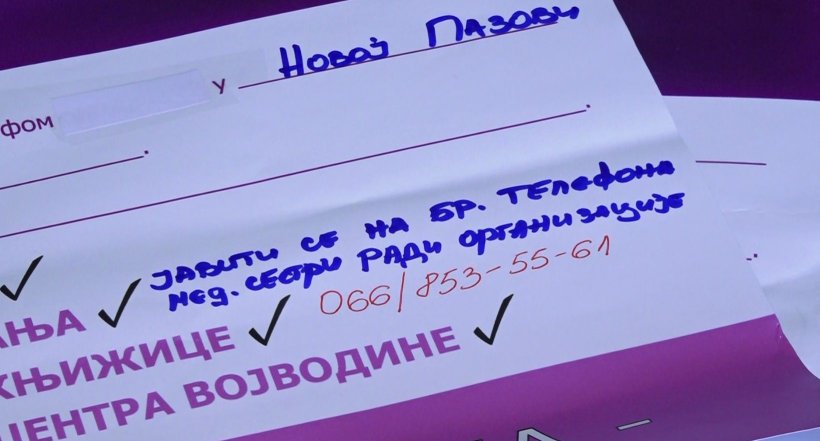 фом у Новој Пазови
ЈАВИТИ СЕ НА БР. ТЕЛЕФОНА
МЕД. СЕСТРИ РАДИ ОРГАНИЗАЦИЈЕ
066/853-55-61
ЊА ✓
КЊИЖИЦЕ ✓
ЦЕНТРА ВОЈВОДИНЕ ✓